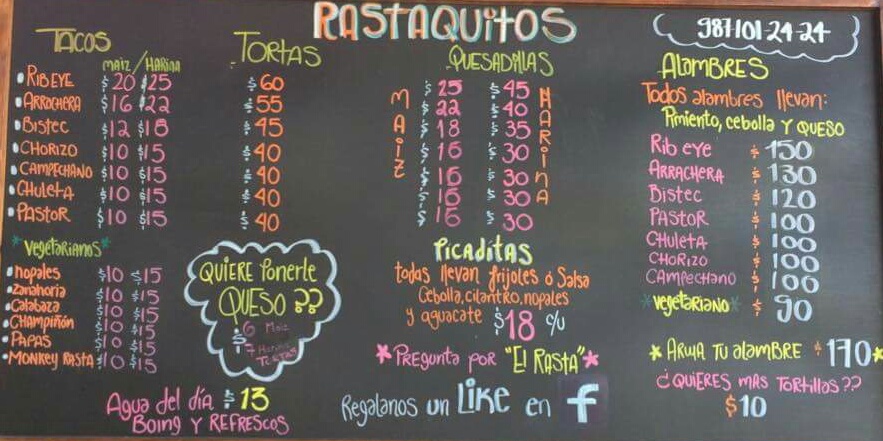 RASTAQUITOS
987 101-24-24
TACOS
MAIZ / HARINA
RIB EYE $20 $25
ARRACHERA $16 $22
BISTEC $12 $18
CHORIZO $10 $15
CAMPECHANO $10 $15
CHULETA $10 $15
PASTOR $10 $15
TORTAS
$60
$55
$45
$40
$40
$40
$40
QUESADILLAS
MAIZ HARINA
$25 $45
$22 $40
$18 $35
$16 $30
$16 $30
$16 $30
$16 $30
ALAMBRES
Todos alambres llevan:
Pimiento, cebolla Y QUESO
Rib eye $150
ARRACHERA $130
Bistec $120
PASTOR $100
CHULETA $100
CHORIZO $100
CAMPECHANO $100
vegetaRiANO $90
vegetaRiANOS
nopales $10 $15
Zanahoria $10 $15
Calabaza $10 $15
CHAMPIÑÓN $10 $15
PAPAS $10 $15
MONKEY RASTA $10 $15
QUIERE Ponerle
QUESO ??
$6 Maiz
$7 Harina
TORTAS
PICADITAS
todas llevan frijoles ó Salsa
Cebolla, cilantro, nopales
y aguacate $18 c/u
PREGUNTA POR "El RASTA"
ARMA TU alaMBRE $170
¿QUIERES MAS TORTillas??
$10
Agua del día $13
BOING Y REFRESCOS
Regalanos un Like en f